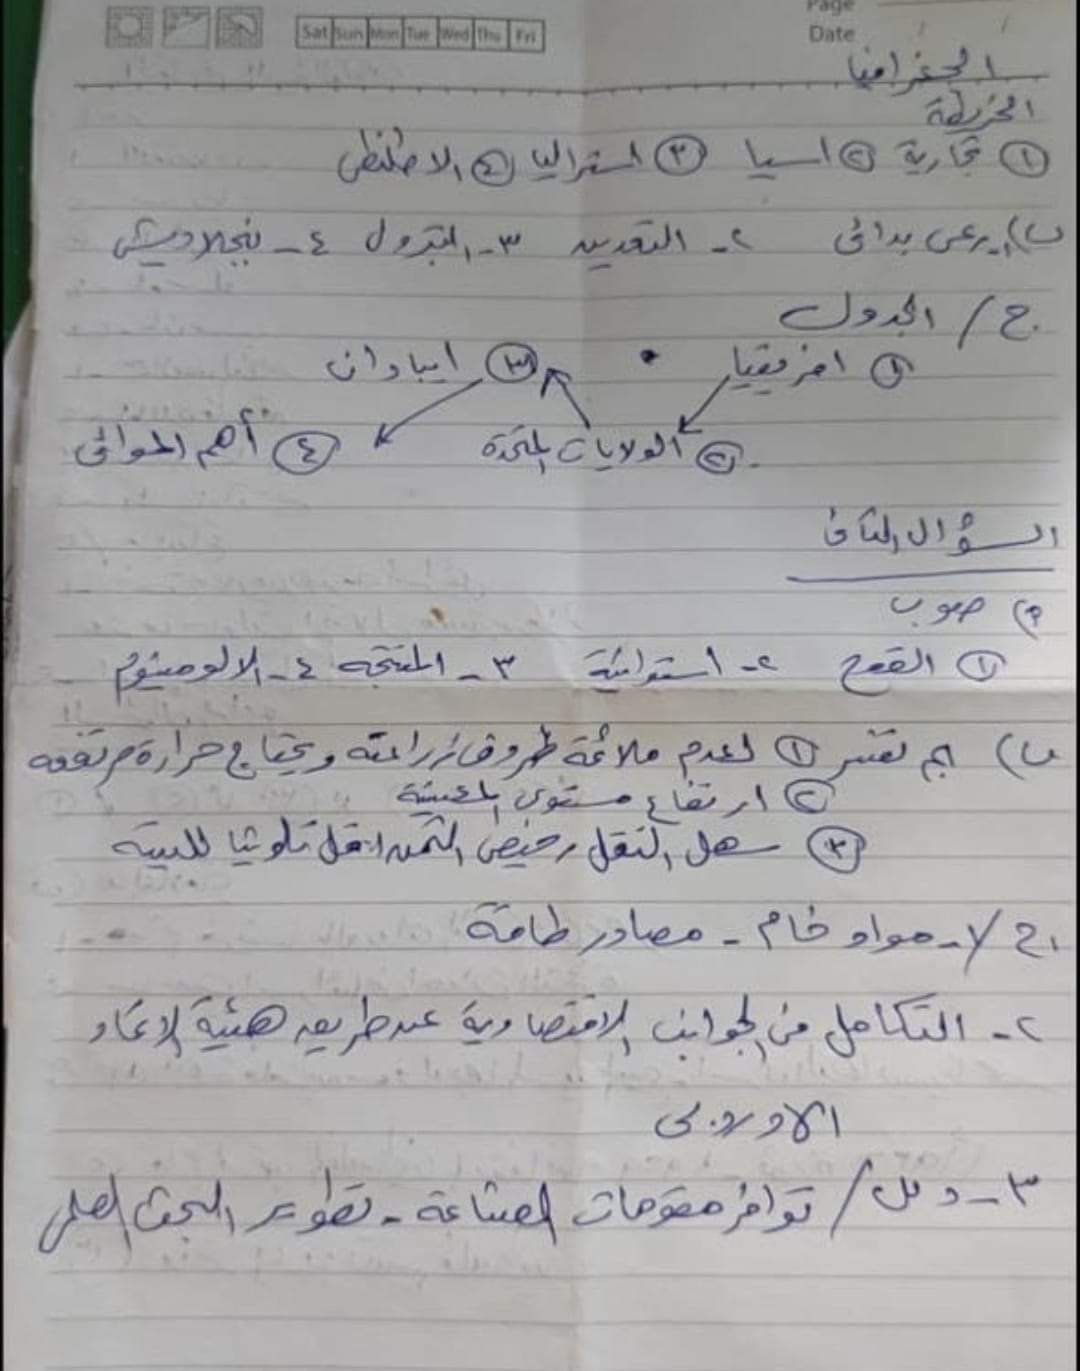 Sat Sun Mon Tue Wed Thu Fri
Page
Date / /
الجغرافيا
الخريطة
① تجارية ② اسيا ③ استراليا ④ الاطلنطى
ب) ١- رعى بدائى ٢- التعدين ٣- البترول ٤- بنجلاديش
ج / الجدول
① افريقيا ③ ايبادان
② الولايات المتحدة ④ أهم الموانى
السؤال الثانى
أ) صوب
① القمح ٢- استوائية ٣- المنتجه ٤- الالومينيوم
ب) بم تفسر ① لعدم ملائمة ظروف زراعته ويحتاج حرارة مرتفعه
② ارتفاع مستوى المعيشة
③ سهل النقل رخيص الثمن اقل تلوثا للبيئة
ج / ١- مواد خام - مصادر طاقة
٢- التكامل فى الجوانب الاقتصادية عن طريق هيئة الاتحاد
الاوروبى
٣- دلل / توافر مقومات الصناعة - تطوير البحث العلمى